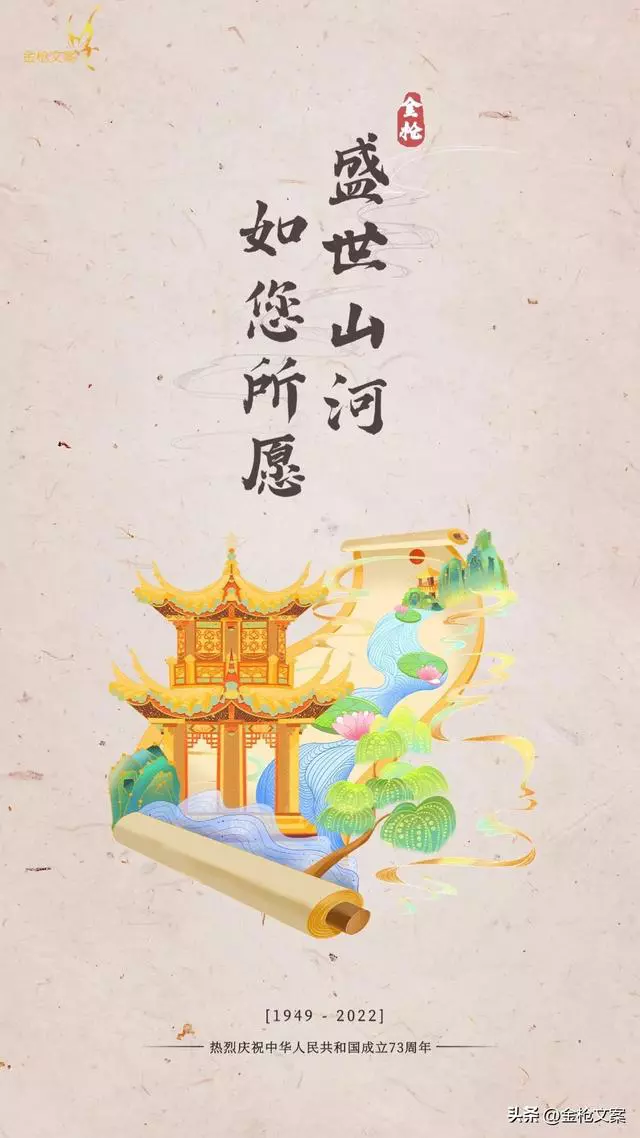 金枪文案
金枪
盛世山河
如您所愿
[1949 - 2022]
热烈庆祝中华人民共和国成立73周年
头条 @金枪文案